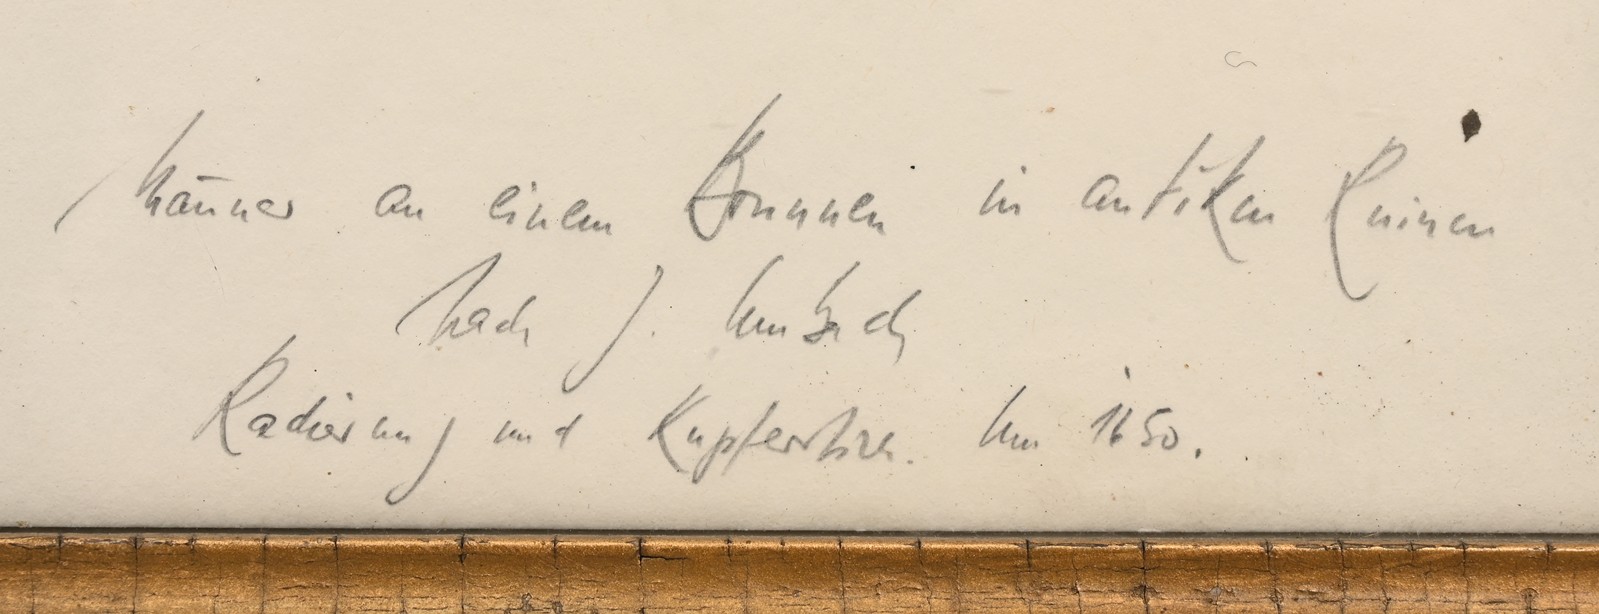 Männer an einem Brunnen in antiken Ruinen
nach J. Umbach
Radierung und Kupferstich. Um 1650.